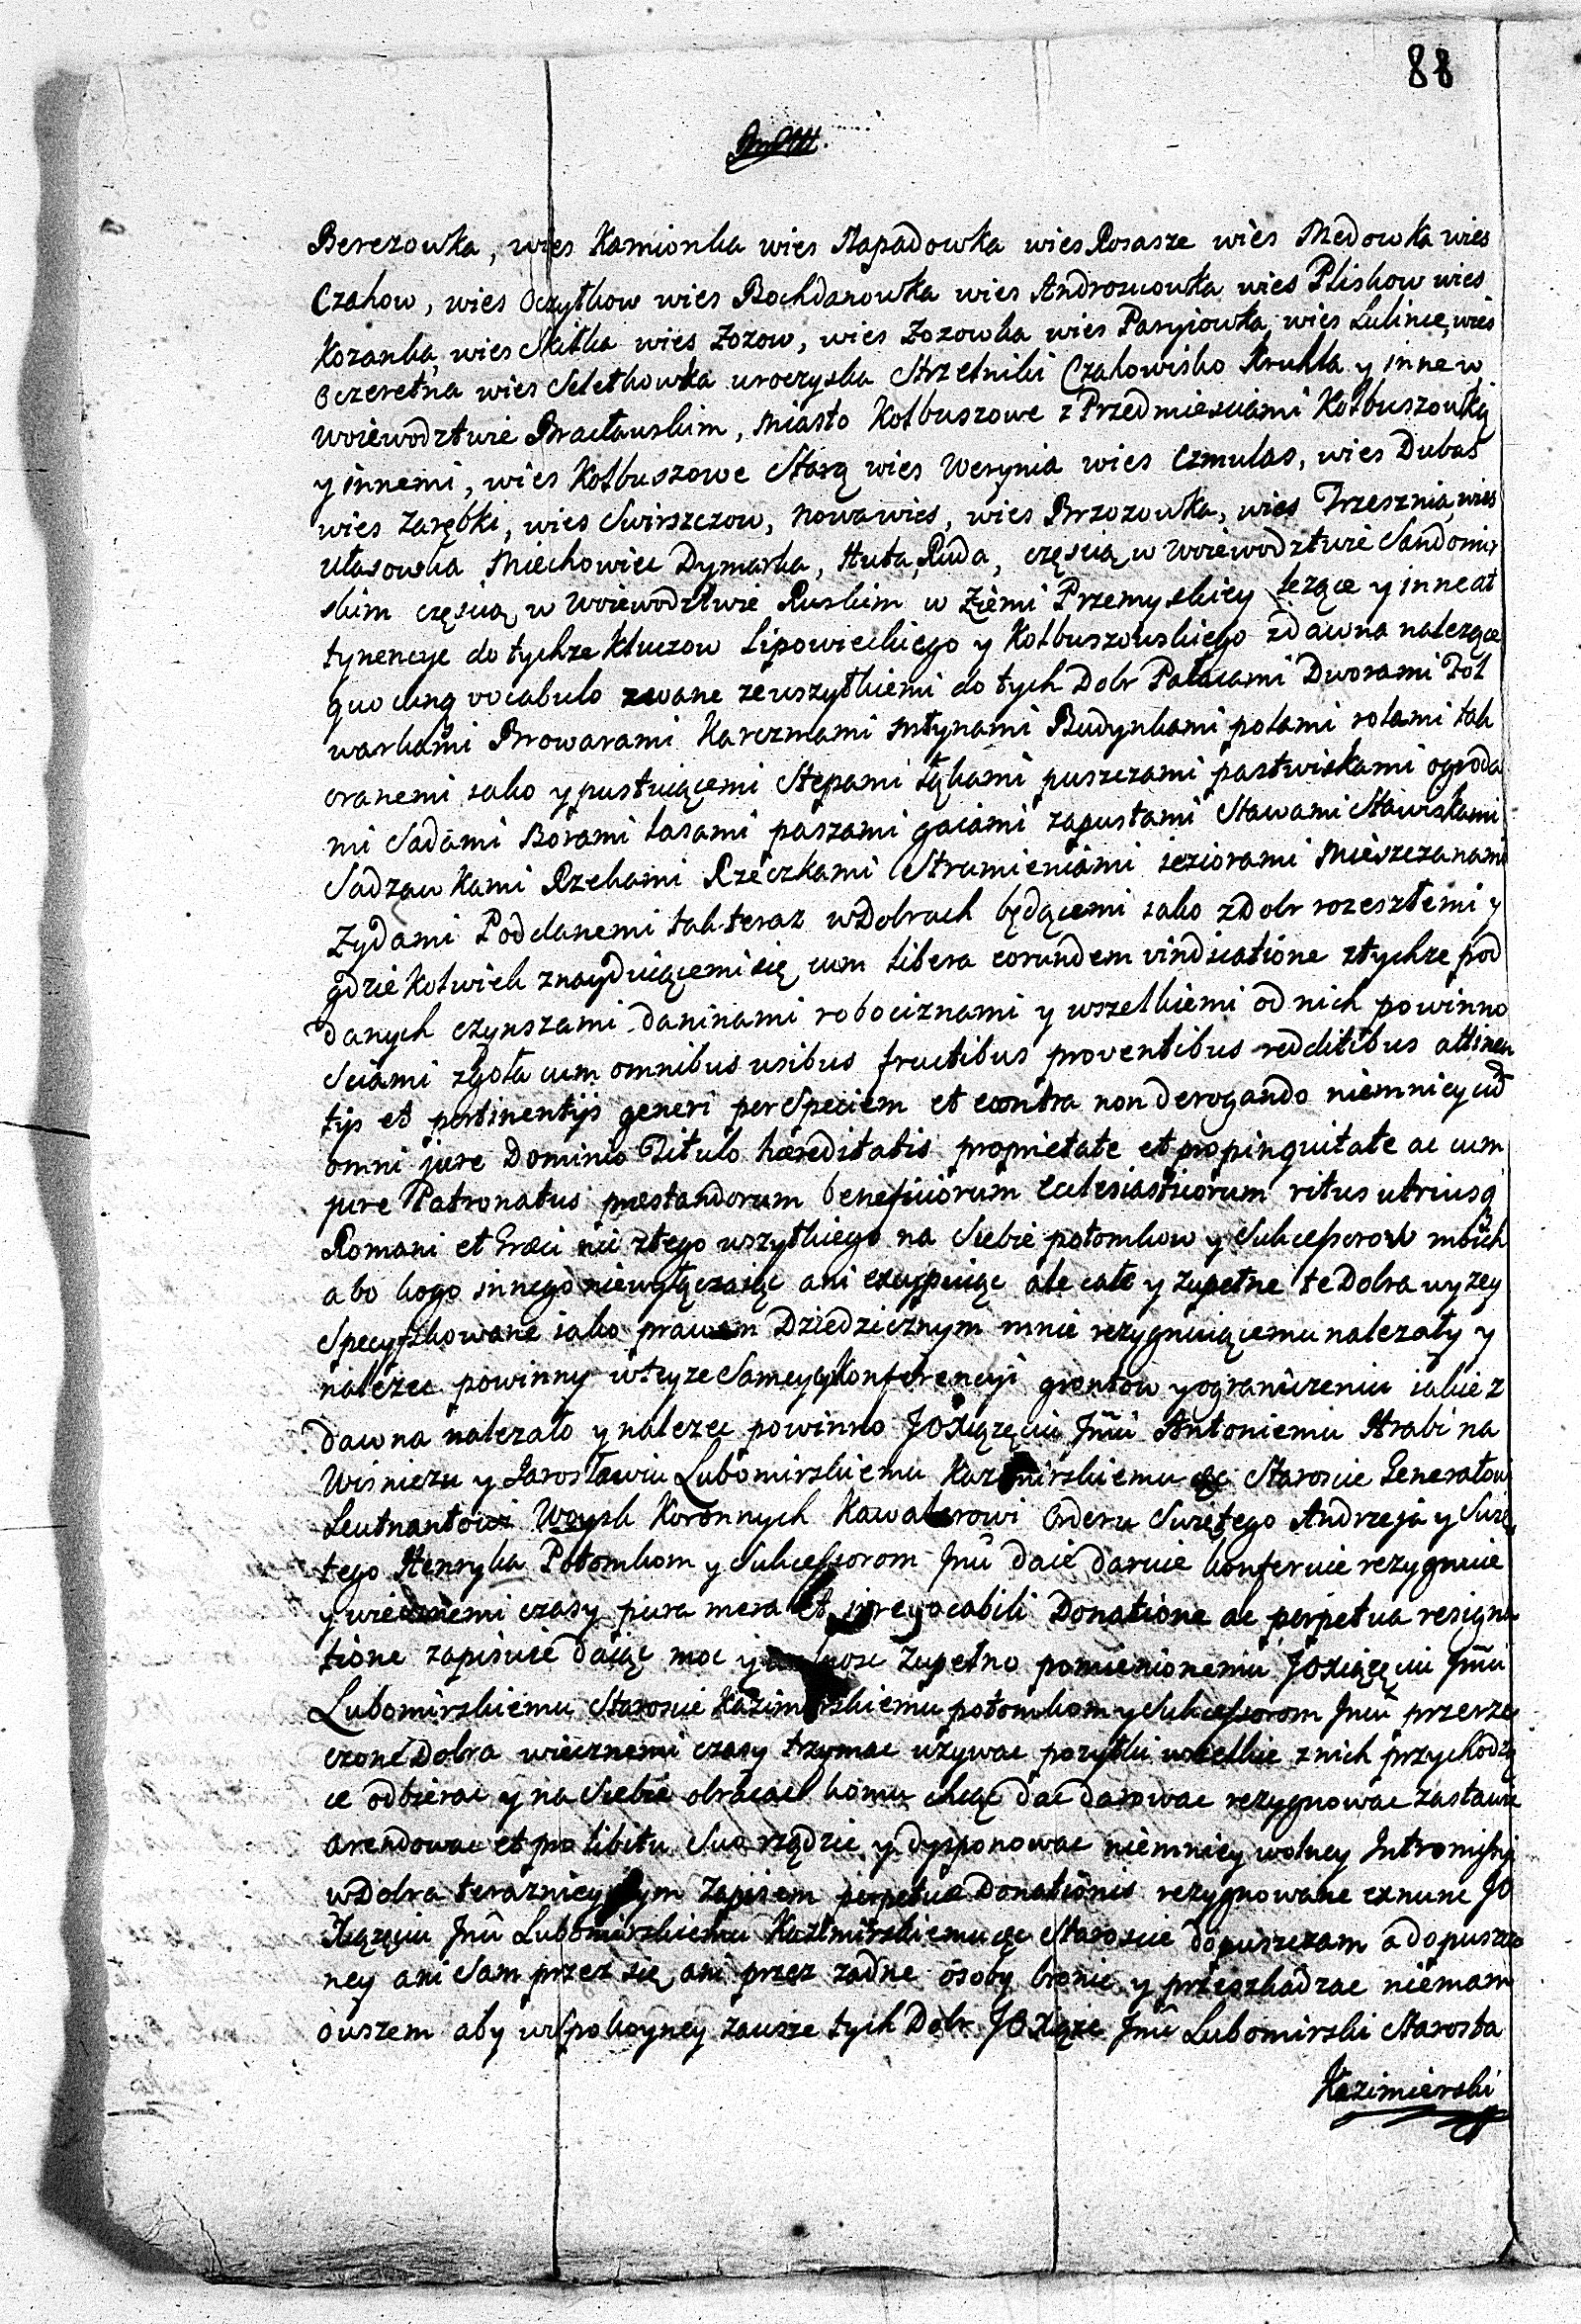 88
Berezowka, wies Kamionka wies Napadowka wies Rosasze wies Medowka wies
Czahow, wies Oczytkow wies Bochdanowka wies Andrzucowka wies Pliskow wies
Kozanka, wies Skitka wies Zozow, wies Zozowka wies Paryiowka, wies Lulince, wies
Oczeretna wies Stetkowka uroczyska Strzelniki Czahowisko Kruhla y inne w
Woiewodztwie Bracławskim, Miasto Kolbuszowe z Przedmiesciami Kolbuszowką
y innemi, wies Kolbuszowe Starą wies Werynia wies Czmulas, wies Dubas
wies Zarębki, wies Swirszczow, Nowa wies, wies Brzozowka, wies Trzesznia, wies
Ulasowka Miechowiec Dymarka, Huta, Ruda, częscią w Woiewodztwie Sandomir
skim częscią w Woiewodztwie Ruskim w Ziemi Przemyskiey lezące y inne at
tynencye do tychze Kluczow Lipowieckiego y Kolbuszowskiego zdawna nalezące
quocunq vocabulo zwane ze wszytkiemi do tych Dobr Pałacami Dworami Fol
warkami Browarami Karczmami Młynami Budynkami polami rolami tak
oranemi iako y pustuiącemi Stepami łąkami puszczami pastwiskami ogroda
mi Sadami Borami lasami paszami gaiami zapustami Stawami Stawiskami
Sadzawkami Rzekami Rzeczkami Strumieniami ieziorami Mieszczanami
Zydami Poddanemi tak teraz w Dobrach będącemi iako z Dobr rozeszłemi y
gdziekolwiek znayduiącemi się cum libera eorundem vindicatione z tychze pod
danych czynszami daninami robociznami y wszelkiemi od nich powinno
sciami zgoła cum omnibus usibus fructibus proventibus redditibus attinen
tijs et pertinentijs generi per Speciem et econtra non derogando niemniey cud
omni jure Dominio Titulo hæreditatis proprietate et propinquitate ac cum
jure Patronatus præstandorum beneficiorum Ecclesiasticorum ritus utriusq
Romani et Græci nic z tego wszytkiego na Siebie potomkow y Sukcessorow moich
abo kogo innego niewyłączaiąc ani excypuiąc ale całe y zupełne te Dobra wyzey
Specyfikowane iako prawem Dziedzicznym mnie rezygnuiącemu nalezały y
nalezec powinny w teyze Samey Konferencyi grontow y ograniczeniu iakie z
dawna nalezało y nalezec powinno JOXiązęciu Jmci Antoniemu Hrabi na
Wisniczu y Jarosławiu Lubomirskiemu Kazimirskiemu &c Staroscie Generałowi
Leutnantowi Woysk Koronnych Kawalerowi Orderu Swiętego Andrzeja y Swię
tego Henryka Potomkom y Sukcessorom Jmci daie daruie konferuie rezygnuie
y wiecznemi czasy pura mera et irrevocabili Donatione ac perpetua resigna
tione zapisuie daiąc moc y zupełno pomienionemu JOXiązęciu Jmci
Lubomirskiemu Staroscie Kazimirskiemu potomkom y Sukcessorom Jmci przerze
czone Dobra wiecznemi czasy trzymac uzywac pozytki wszelkie z nich przychodzą
ce odbierac y na Siebie obracac komu chcąc dac darowac rezygnowac zastawic
arendowac et pro libitu Suo rządzic y dysponowac niemniey wolney Intromissyi
w Dobra teraznieyszym Zapisem perpetuæ Donationis rezygnowane exnunc JO
Xiązęciu Jmci Lubomirskiemu Kazimirskiemu &c Staroscie dopuszczam a dopuszczo
ney ani Sam przez się ani przez zadne osoby bronic y przeszkadzac niemam
owszem aby w spokoyney zawsze tych Dobr JOXiąze Jmci Lubomirski Starosta
Kazimierski